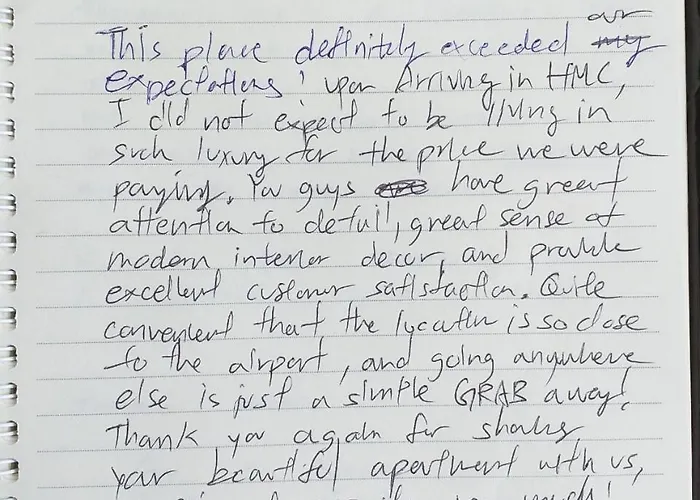 This place definitely exceeded our
expectations! Upon Arriving in HMC,
I did not expect to be living in
such luxury for the price we were
paying. You guys have great
attention to detail, great sense of
modern interior decor, and provide
excellent customer satisfaction. Quite
convenient that the location is so close
to the airport, and going anywhere
else is just a simple GRAB away!
Thank you again for sharing
your beautiful apartment with us,
much!